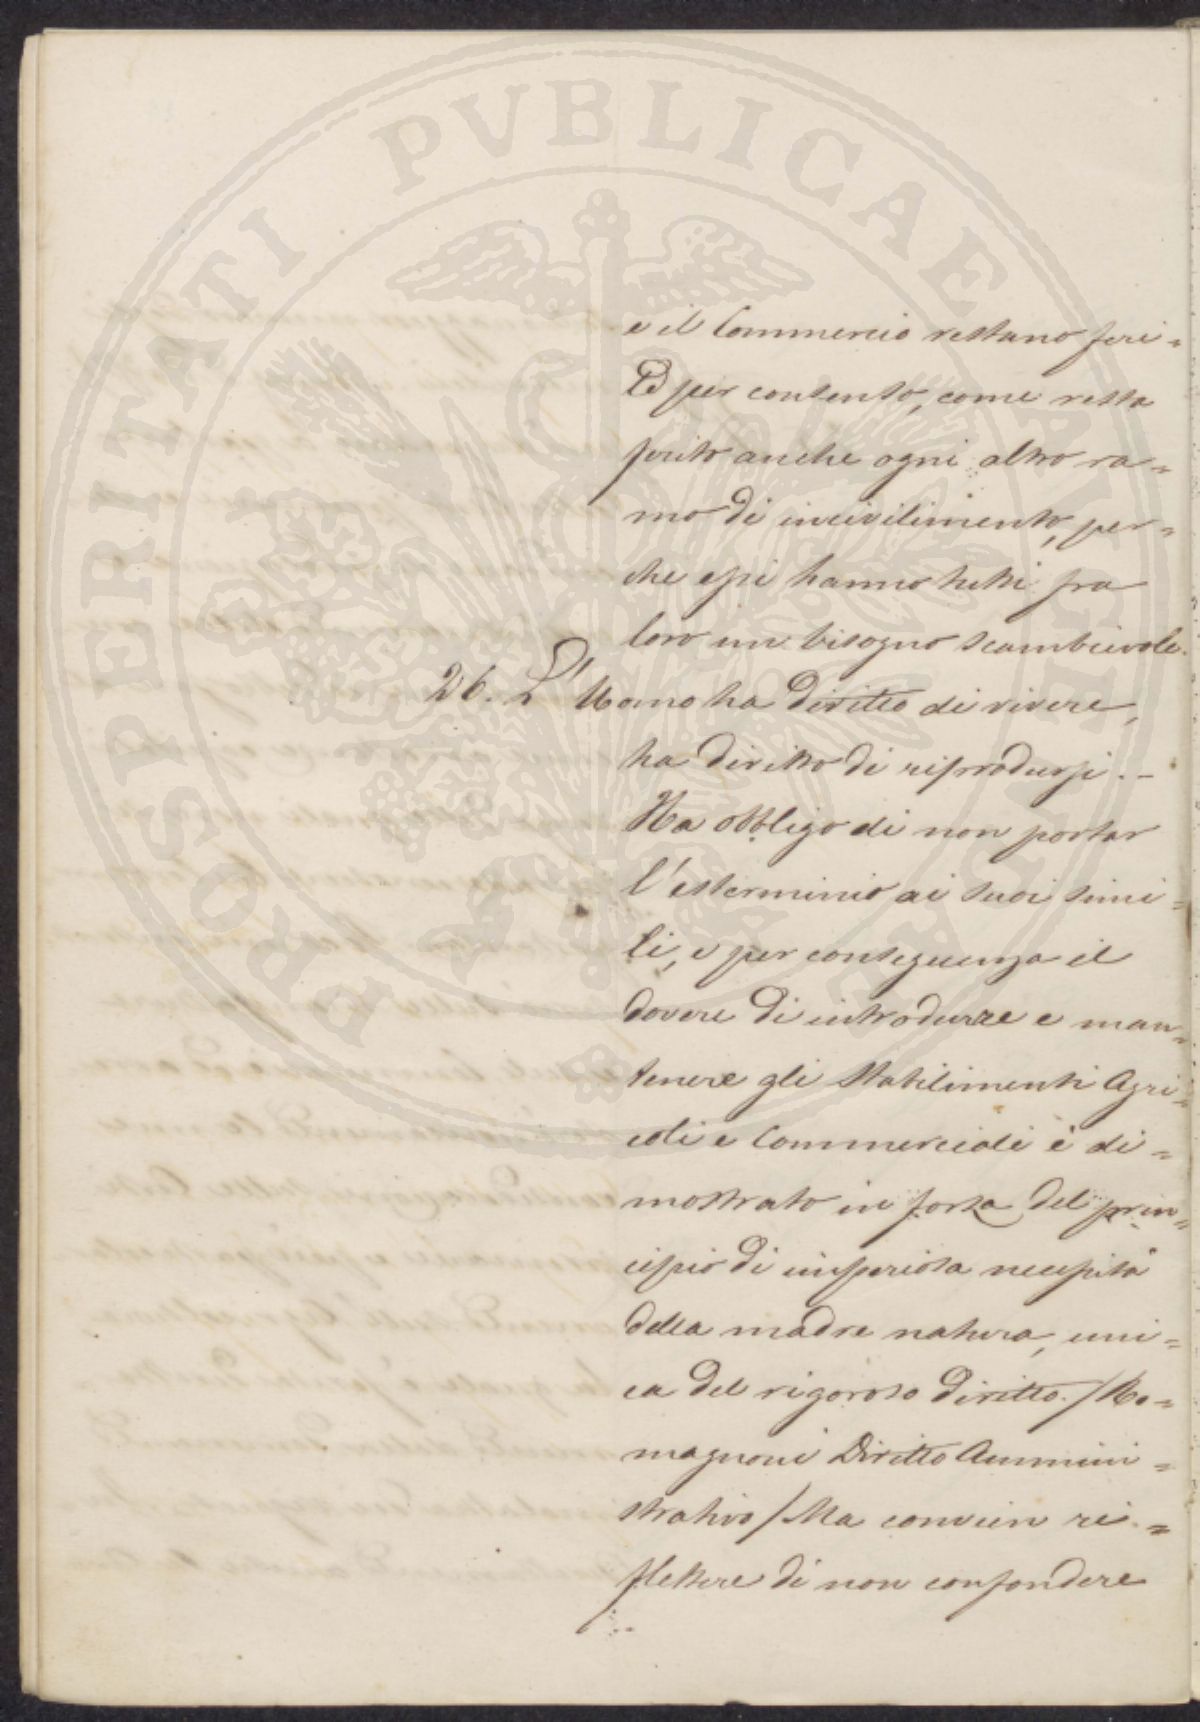 PROSPERITATI PUBLICAE AUGENDAE
e il Commercio restano feri=
ti per contento, come resta
ferito anche ogni altro ra=
mo di incivilimento, per=
che essi hanno tutti fra
loro un bisogno scambievole.
26. L'Uomo ha diritto di vivere,
ha diritto di riprodursi. –
Ha obbligo di non portar
l'esterminio ai suoi simi=
li, e per conseguenza il
dovere di introdurre e man=
tenere gli Stabilimenti Agri=
coli e Commerciali è di=
mostrato in forza del prin=
cipio di imperiosa necessità
della madre natura, uni=
ca del rigoroso diritto. /Ro=
magnoni Diritto Ammini=
strativo/ Ma convien ri=
flettere di non confondere